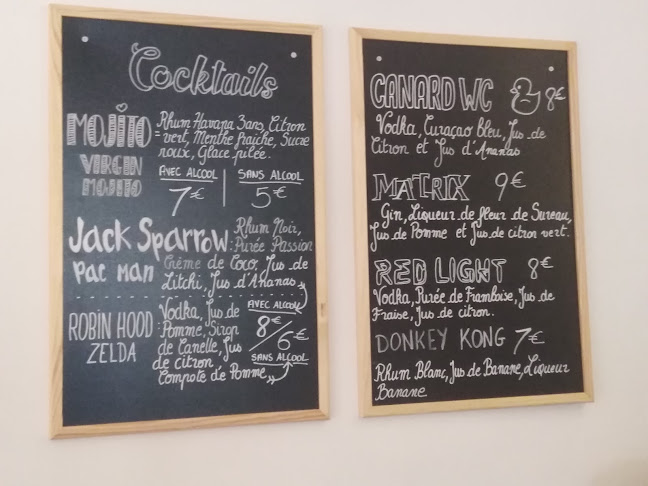 Cocktails
MOJITO
VIRGIN
MOJITO
Rhum Havana 3ans, Citron
= vert, Menthe fraiche, Sucre
roux, Glace pilée.
AVEC ALCOOL
7€
SANS ALCOOL
5€
Jack Sparrow
PAC MAN
Rhum Noir,
: Purée Passion
Crème de Coco, Jus de
Litchi, Jus d'Ananas
ROBIN HOOD
ZELDA
: Vodka, Jus de
Pomme, Sirop
de Canelle, Jus
de citron,
Compote de Pomme
AVEC ALCOOL
8€ / 6€
SANS ALCOOL
CANARD WC 8€
Vodka, Curaçao Bleu, Jus de
Citron et Jus d'Ananas
MATRIX 9€
Gin, Liqueur de fleur de Sureau,
Jus de Pomme et Jus de citron vert.
RED LIGHT 8€
Vodka, Purée de Framboise, Jus de
Fraise, Jus de citron.
DONKEY KONG 7€
Rhum Blanc, Jus de Banane, Liqueur
Banane